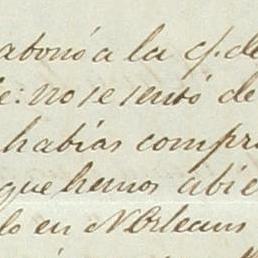 abonó a la c/. de
e: no se sentó de
habías compr
que hemos abie
lo en N Orleans